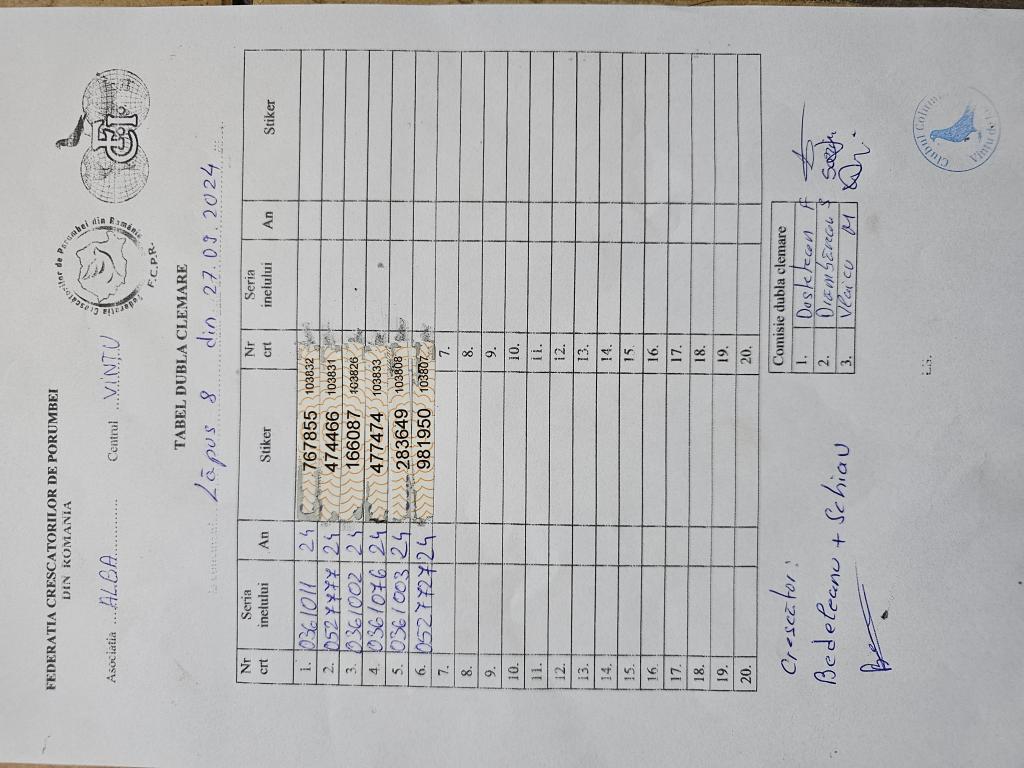 FEDERATIA CRESCATORILOR DE PORUMBEI
DIN ROMANIA
Federatia Crescătorilor de Porumbei din România
F.C.P.R.
Asociatia ...ALBA............ Centrul ...VINTU
TABEL DUBLA CLEMARE
Lăpus 8 din 27.09.2024
Nr crt Seria inelului An Stiker Nr crt Seria inelului An Stiker
1. 0361011 24 767855 103832
2. 0527777 24 474466 103831
3. 0361002 24 166087 103826
4. 0361076 24 477474 103833
5. 0361003 24 283649 103808
6. 0527727 24 981950 103807
7. 7.
8. 8.
9. 9.
10. 10.
11. 11.
12. 12.
13. 13.
14. 14.
15. 15.
16. 16.
17. 17.
18. 18.
19. 19.
20. 20.
Crescător:
Bedeleanu + Schiau
Comisie dubla clemare
1. F
2. S
3. Vlaicu M
L.S.
Clubul